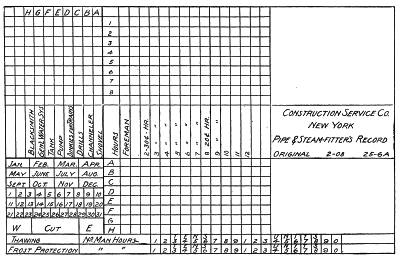 H G F E D C B A
1
2
3
4
5
6
7
8
BLACKSMITH
GEN'L WATER SYS.
TANK
PUMP
DRILLS
CHANNELER
SHOVEL
HOURS
FOREMAN
2-30¢-HR.
3 " "
4 " "
5 " "
6 " "
7 " "
8 20¢ HR.
9 " "
10 " "
11 " "
12 " "
CONSTRUCTION SERVICE CO.
NEW YORK
PIPE & STEAM-FITTER'S RECORD
ORIGINAL 2-08 25-6A
JAN. FEB. MAR. APR. A
MAY JUNE JULY AUG. B
SEPT OCT NOV DEC. C
1 2 3 4 5 6 7 8 9 10 D
11 12 13 14 15 16 17 18 19 20 E
21 22 23 24 25 26 27 28 29 30 31 F
G
W CUT E H
THAWING NO. MAN HOURS 1 2 3 4 5 6 7 8 9 0 1 2 3 4 5 6 7 8 9 0
FROST PROTECTION " " 1 2 3 4 5 6 7 8 9 0 1 2 3 4 5 6 7 8 9 0